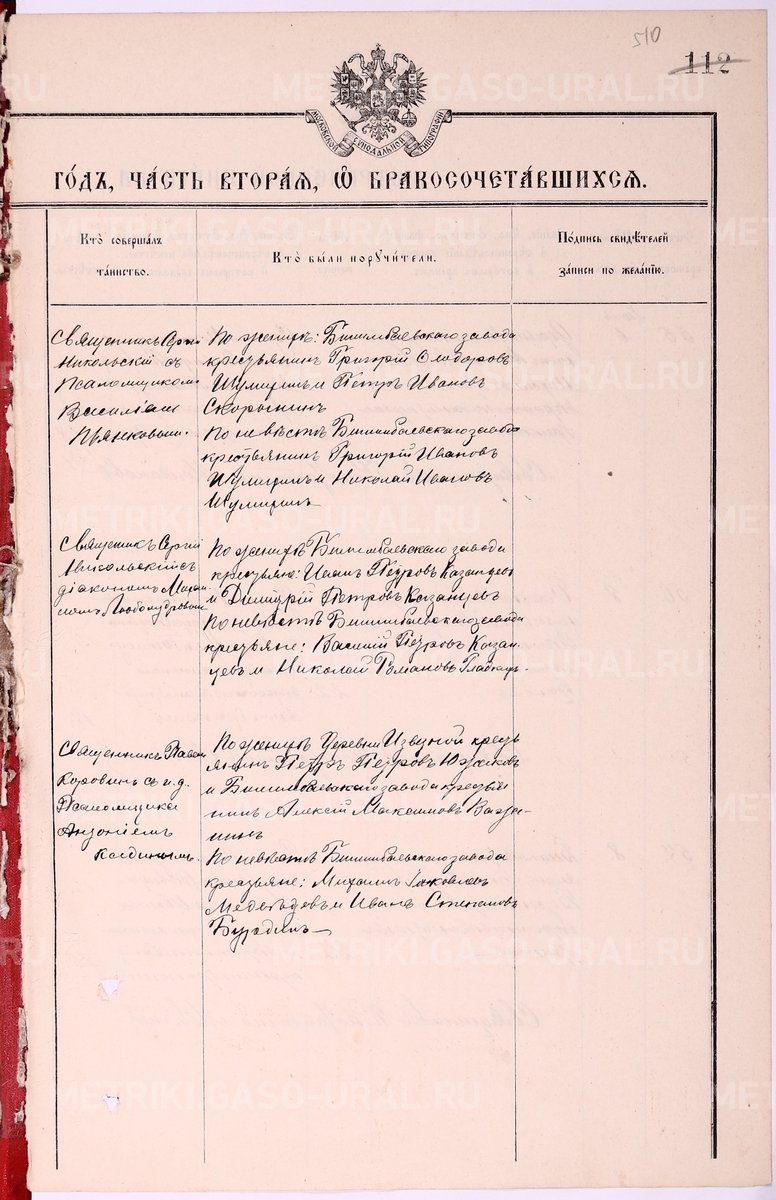 510
112
МОСКОВСКОЙ СѴНОДАЛЬНОЙ ТИПОГРАФІИ
ГОДЪ, ЧАСТЬ ВТОРАЯ, Ѡ БРАКОСОЧЕТАВШИХСЯ.
Кто совершалъ
таинство.
Кто были поручители.
Подпись свидѣтелей
записи по желанію.
Священникъ Сергій
Никольскій съ
Псаломщикомъ
Василіемъ
Пьянковымъ.
По женихѣ: Билимбаевскаго завода
крестьянинъ Григорій Ѳедоровъ
Шумиринъ и Петръ Ивановъ
Скорынинъ
По невѣстѣ Билимбаевскаго завода
крестьянинъ Григорій Ивановъ
и Николай Ивановъ
Священникъ Сергій
Никольскій съ
діакономъ Михаи
ломъ Любомудровымъ
По женихѣ Билимбаевскаго завода
крестьяне: Иванъ Петровъ Казанцевъ
и Димитрій Петровъ Казанцевъ
По невѣстѣ Билимбаевскаго завода
крестьяне: Василій Петровъ Казан-
цевъ и Николай Романовъ
Священникъ Павелъ
Коровинъ съ и. д.
Псаломщика
Антоніемъ
По женихѣ Деревни Извѣзной кресть
янинъ Петръ Петровъ Южаковъ
и Билимбаевскаго завода крестьян
нинъ Алексій Максимовъ
По невѣстѣ Билимбаевскаго завода
крестьяне: Михаилъ Яковлевъ
Медвѣдевъ и Иванъ Степановъ
METRIKI.GASO-URAL.RU